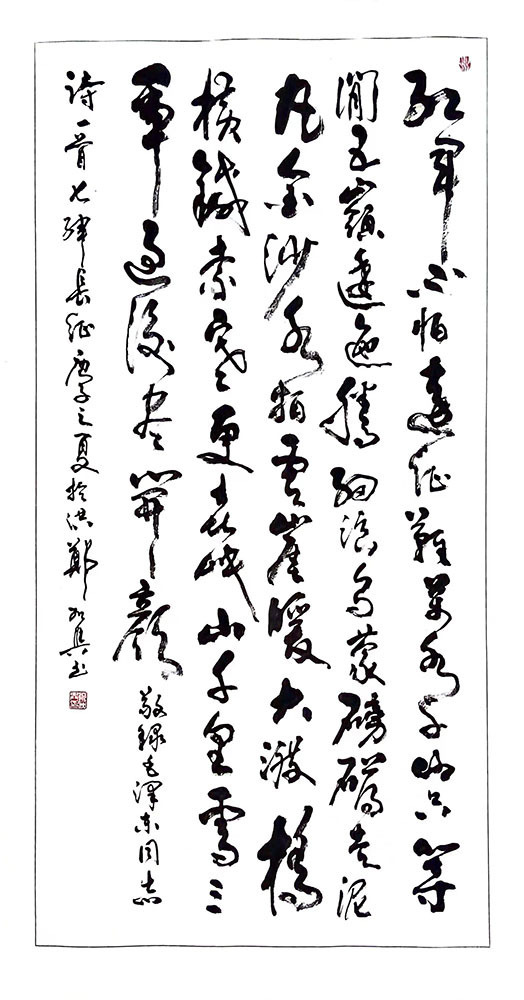 紅軍不怕遠征難萬水千山只等
閒五嶺逶迤騰細浪烏蒙磅礴走泥
丸金沙水拍雲崖暖大渡橋
橫鐵索寒更喜岷山千里雪三
軍過後盡開顏 敬錄毛澤東同志
詩一首七律長征庚子之夏於洪鄭書